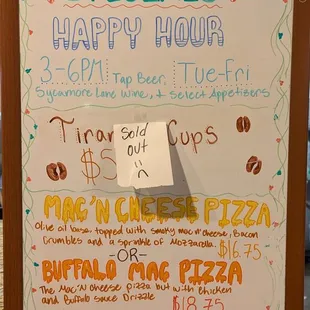 HAPPY HOUR
3-6PM Tap Beer, Tue-Fri
Sycamore Lane Wine, + Select Appetizers
Cups
Sold
out
:(
$5
MAC'N CHEESE PIZZA
Olive oil base, topped with smoky mac n' cheese, Bacon
Crumbles and a sprinkle of Mozzarella. $16.75
-OR-
BUFFALO MAC PIZZA
The Mac'N Cheese pizza but with Chicken
and Buffalo Sauce Drizzle
$18.75